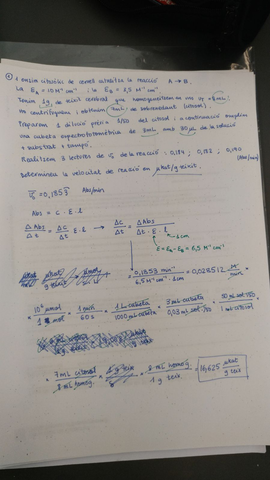 ① 1 enzim citosòlic de cervell catalitza la reacció A → B.
La E_A = 10 M⁻¹ cm⁻¹ i la E_B = 3,5 M⁻¹ cm⁻¹.
Tenim 1g de teixit cerebral que homogeneïtzem en
centrifuguem i obtenim 7mL de sobrenedant (citosol).
Preparem 1 dilució prèvia 1/50 del citosol; a continuació
una cubeta espectrofotomètrica de 3mL amb 30 µL de la solució
+ substrat + tampó.
Realitzem 3 lectures de v₀ de la reacció: 0,184; 0,182; 0,190
(Abs/min)
Determineu la velocitat de reacció en µkat/g teixit.
v̄₀ = 0,1853 Abs/min
Abs = c · E · l
ΔAbs/Δt = Δc/Δt · E · l → Δc/Δt = ΔAbs/(Δt · E · l)
E = E_A - E_B = 6,5 M⁻¹ cm⁻¹
= 0,1853 min⁻¹ / 6,5 M⁻¹ cm⁻¹ · 1cm = 0,028512 M/min
· 10⁶ µmol / 1 mol · 1 min / 60 s · 1 L cubeta / 1000 mL cubeta · 3 mL cubeta / 0,03 mL sol. 1/50 · 50 mL sol. 1/50 / 1 mL citosol
· 7 mL citosol / 8 mL homog. · 8 mL homog. / 1 g teix. = 16,625 µkat / g teix